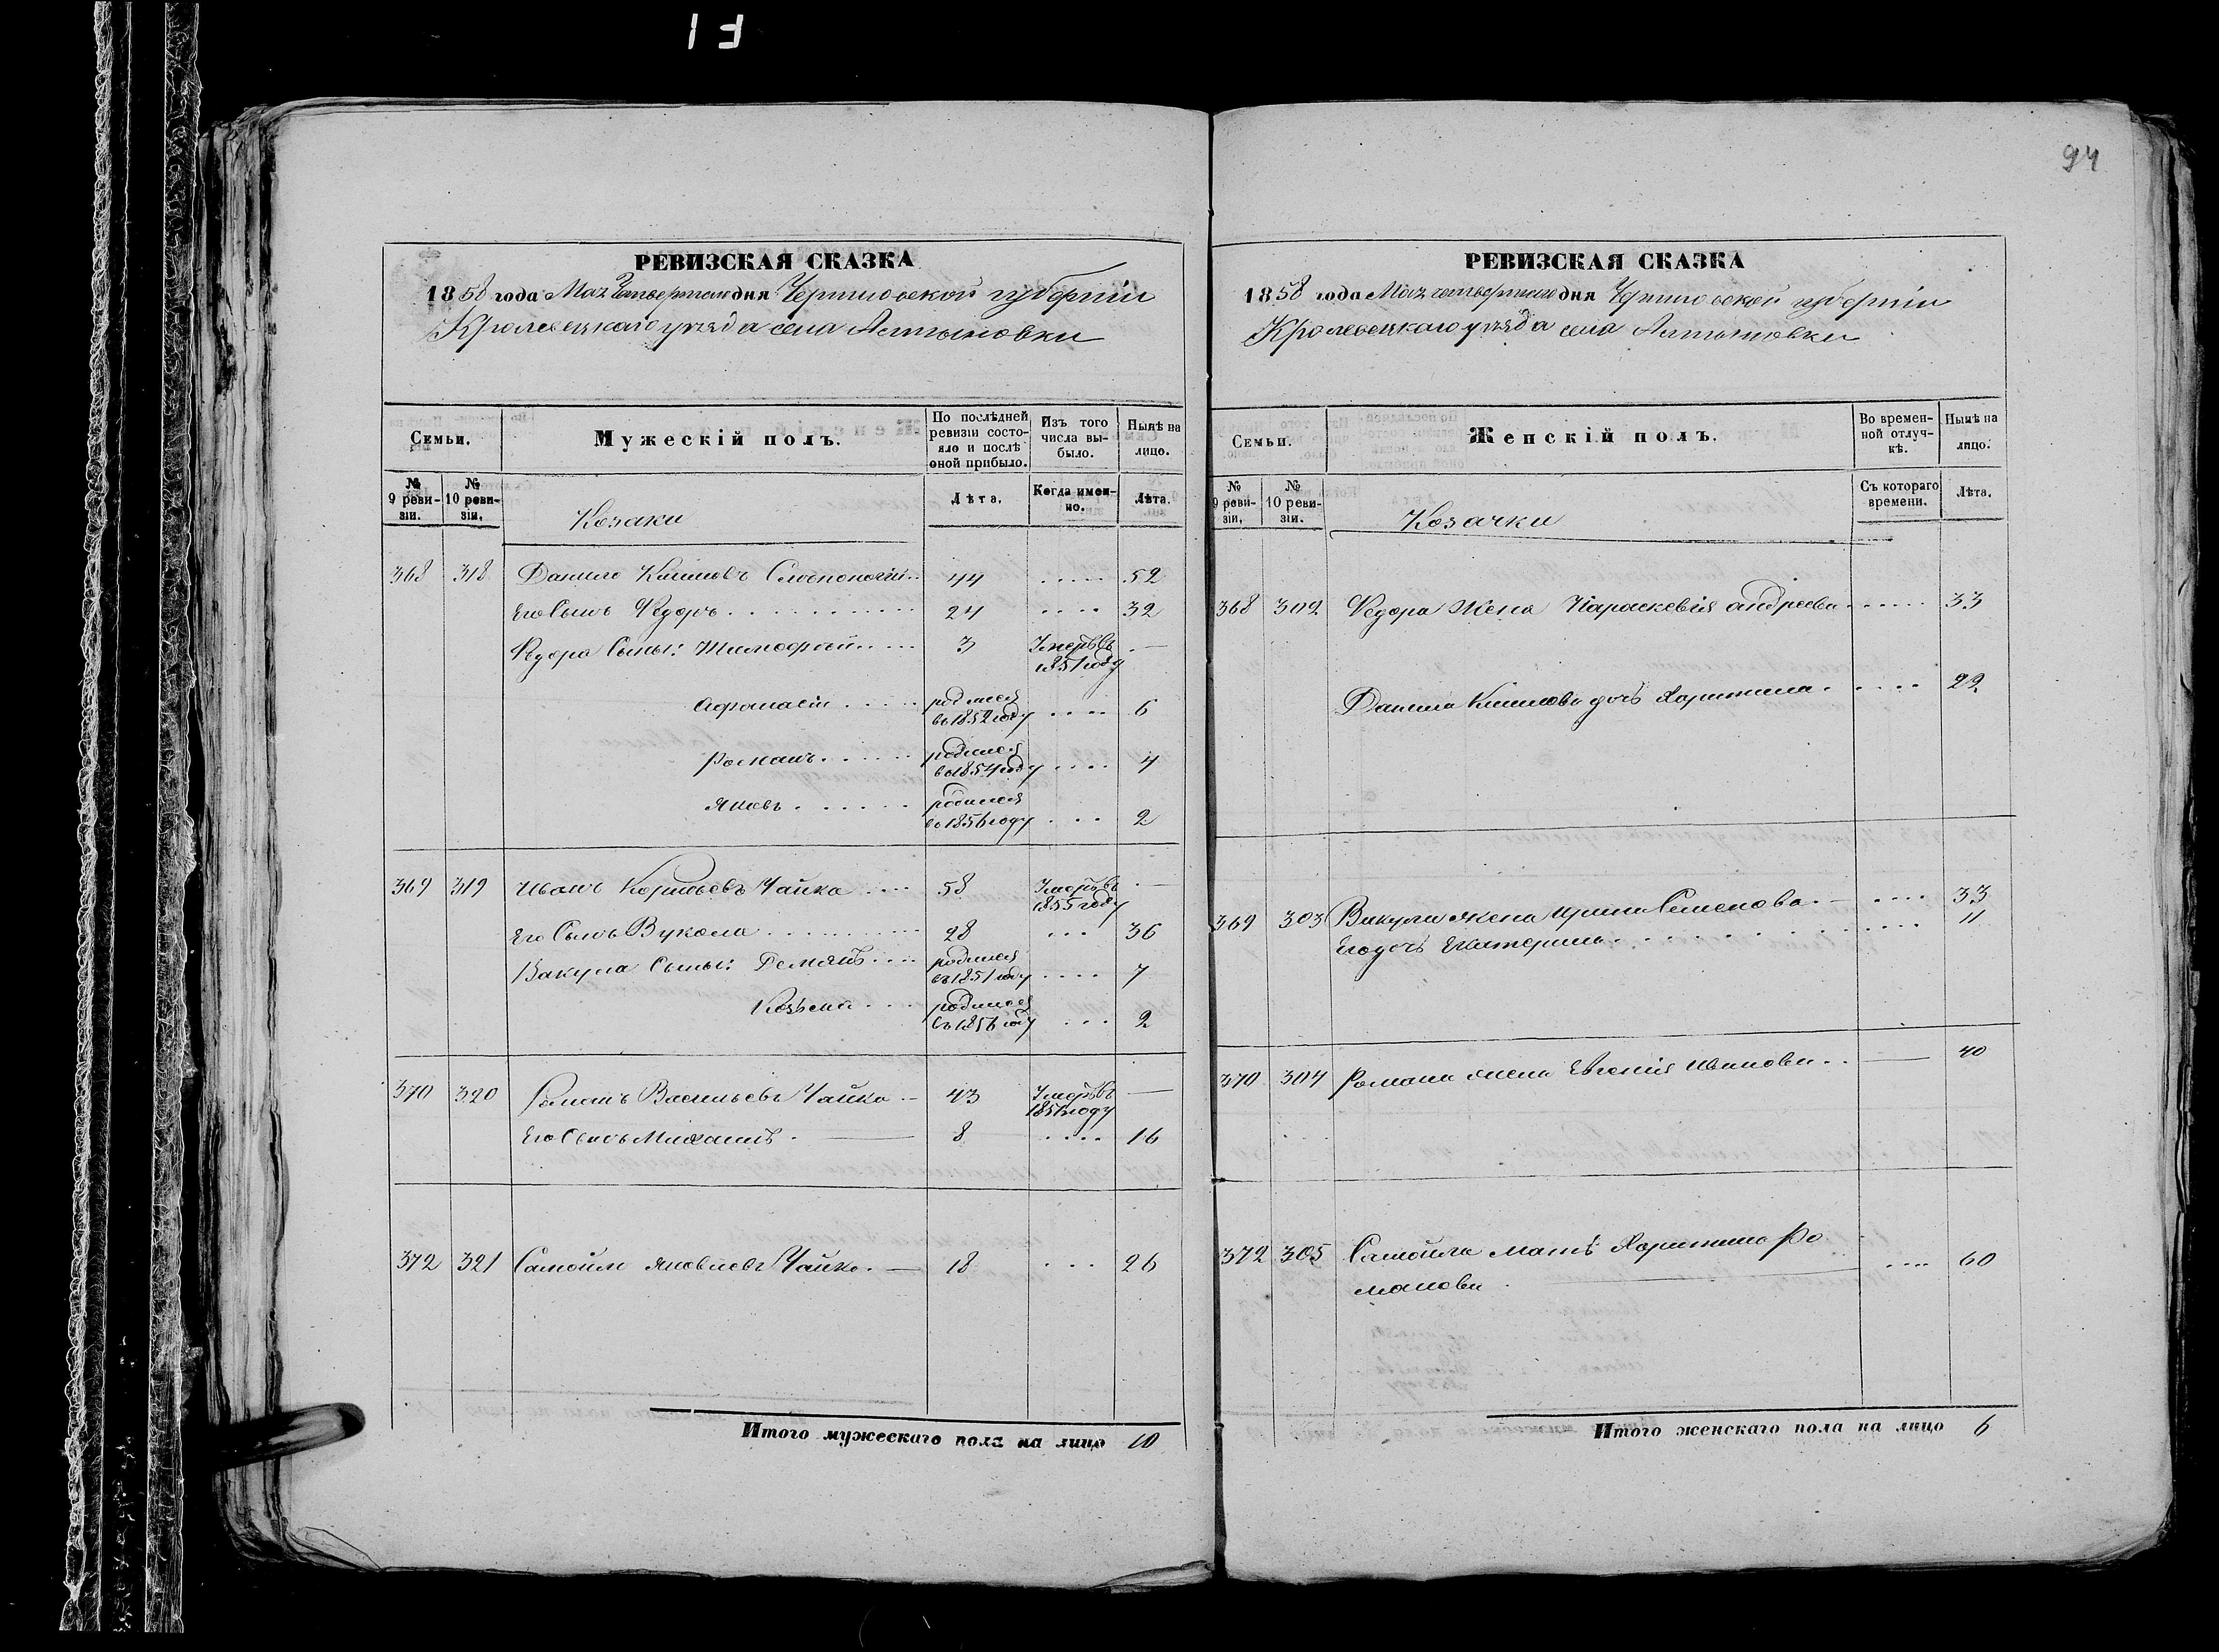 94
РЕВИЗСКАЯ СКАЗКА
1858 года Мая Четвертаго дня Черниговской губерніи
Кролевецкаго уезда села Алтыновки
Семьи.
Мужескій полъ.
По послѣдней ревизіи состояло и послѣ оной прибыло.
Изъ того числа выбыло.
Нынѣ на лицо.
№ 9 ревизіи.
№ 10 ревизіи.
Козаки
Лѣта.
Когда именно.
Лѣта.
368 318 Данило Климовъ 44 ..... 52
Его Сынъ Федоръ 24 .... 32
Федора Сыны: Тимофей 3 Умеръ въ 1851 году —
Афанасій родился въ 1852 году .... 6
Романъ родился въ 1854 году .... 4
Яковъ родился въ 1856 году ... 2
369 319 Иванъ Чайка 58 Умеръ въ 1855 году —
Его Сынъ Вукола 28 ... 36
Вакула Сыны: Демянъ родился въ 1851 году .... 7
Козьма родился въ 1856 году ... 2
370 320 Романъ Васильевъ Чайка 43 Умеръ въ году —
Его Сынъ Михаилъ 8 .... 16
372 321 Самойло Яковлевъ Чайка 18 ... 26
Итого мужескаго пола на лицо 10
РЕВИЗСКАЯ СКАЗКА
1858 года Мая четвертаго дня Черниговской губерніи
Кролевецкаго уезда села Алтыновки
Семьи.
Женскій полъ.
Во временной отлучкѣ.
Нынѣ на лицо.
№ 9 ревизіи.
№ 10 ревизіи.
Козачки
Съ котораго времени.
Лѣта.
368 302 Федора Жена Параскевія Андреева 33
Данила Климова дочь Харитина 22
369 303 Вакулы жена Ирина Семенова 33
Его дочь Екатерина 11
370 304 Романа жена Евгенія Иванова 40
372 305 Самойла мать Харитина Ро
манова 60
Итого женскаго пола на лицо 6